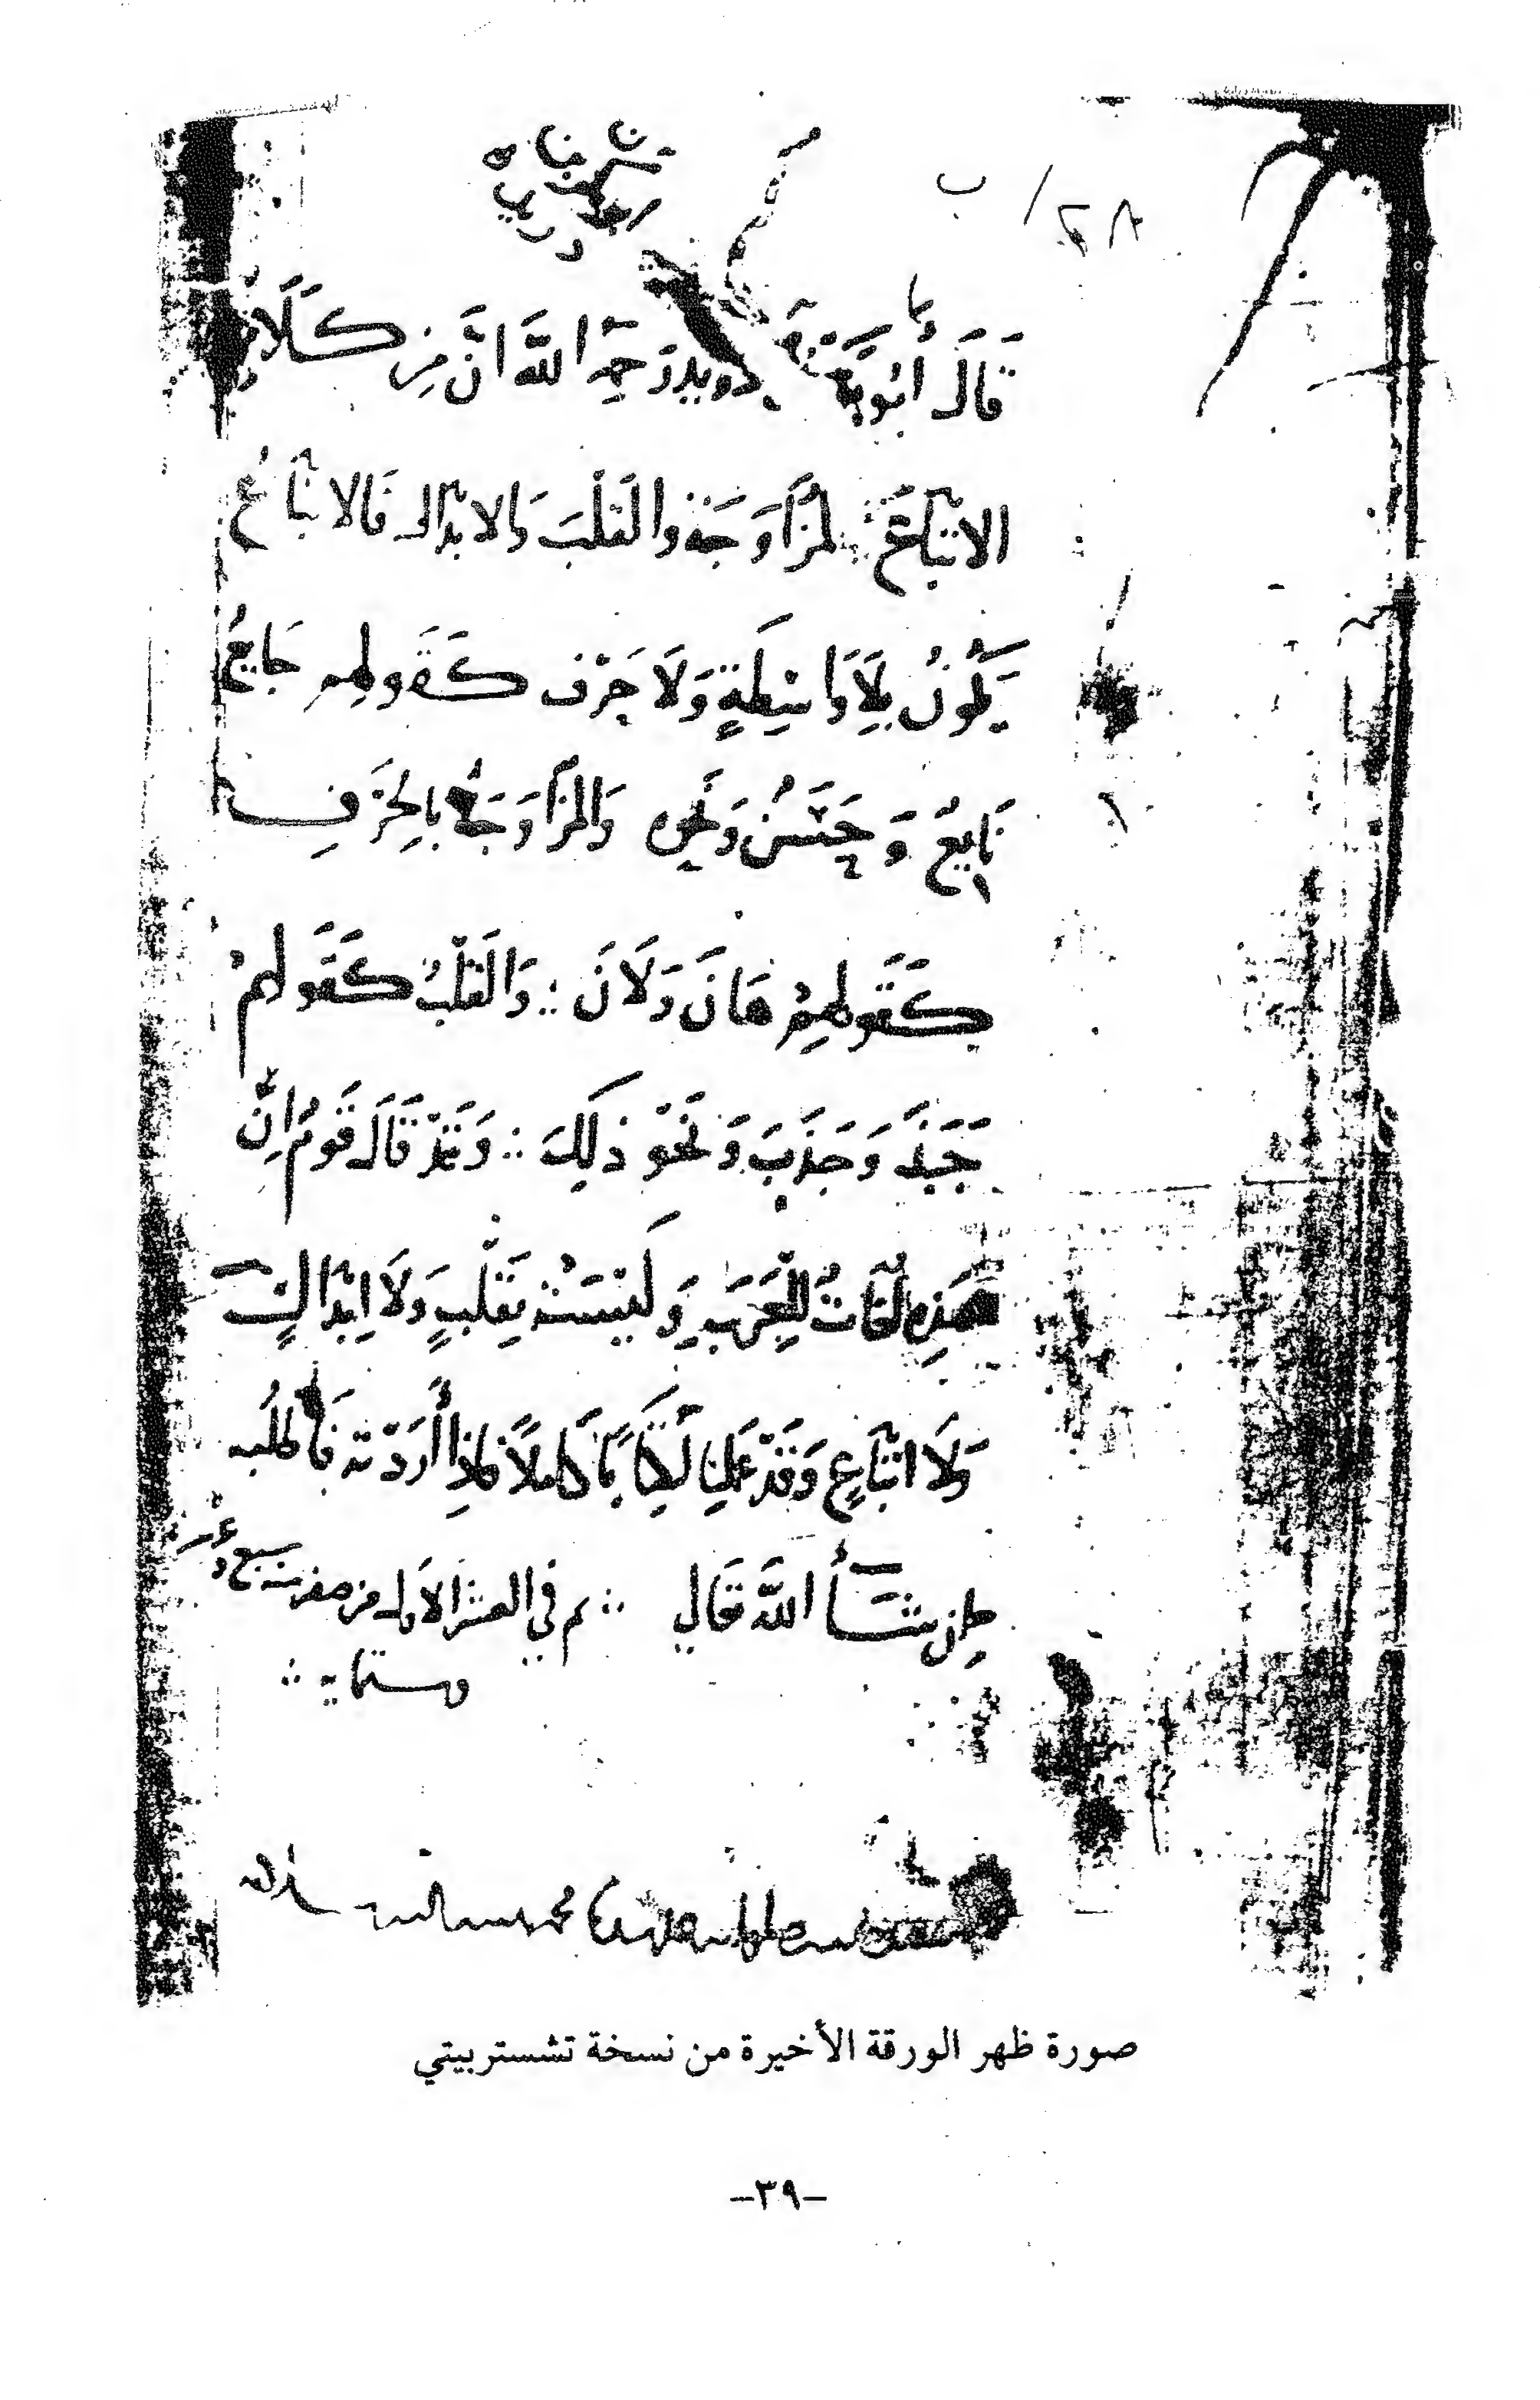 ٢٨ / ب
قَالَ أَبُو بَكْرٍ دريد رَحِمَهُ اللَّهُ انَّ مِن كَلَامِ
الاتْبَاعَ والمُزَاوَجَةَ والقَلْبَ والابْدَالَ فَالاتْبَاعُ
يَكُونُ بِلَا وَاسِطَةٍ وَلَا حَرْفٍ كَقَولِهم جَايِعٌ
نَايِعٌ وَحَسَنٌ وَالمُزَاوَجَةُ بِالحَرْفِ
كَقَولِهِمْ هَانَ وَلَانَ ∴ وَالقَلْبُ كَقَولِهِمْ
جَبَذَ وَجَذَبَ وَنَحْوَ ذَلِكَ ∴ وَقَدْ قَالَ قَومٌ إِنَّ
هَذِهِ لُغَاتٌ لِلْعَرَبِ وَلَيْسَتْ بِقَلْبٍ وَلَا إِبْدَالٍ
وَلَا اتْبَاعٍ وَقَدْ كِتَابًا كَامِلًا فَإِذَا أَرَدْتَهُ فَاطْلُبه
إِن شَآءَ اللَّهُ تَعَالَى ∴ تم في العشر الاول من صفر سنة سبع
وستماية ∴
محمد
صورة ظهر الورقة الأخيرة من نسخة تشستربيتي
-٣٩-